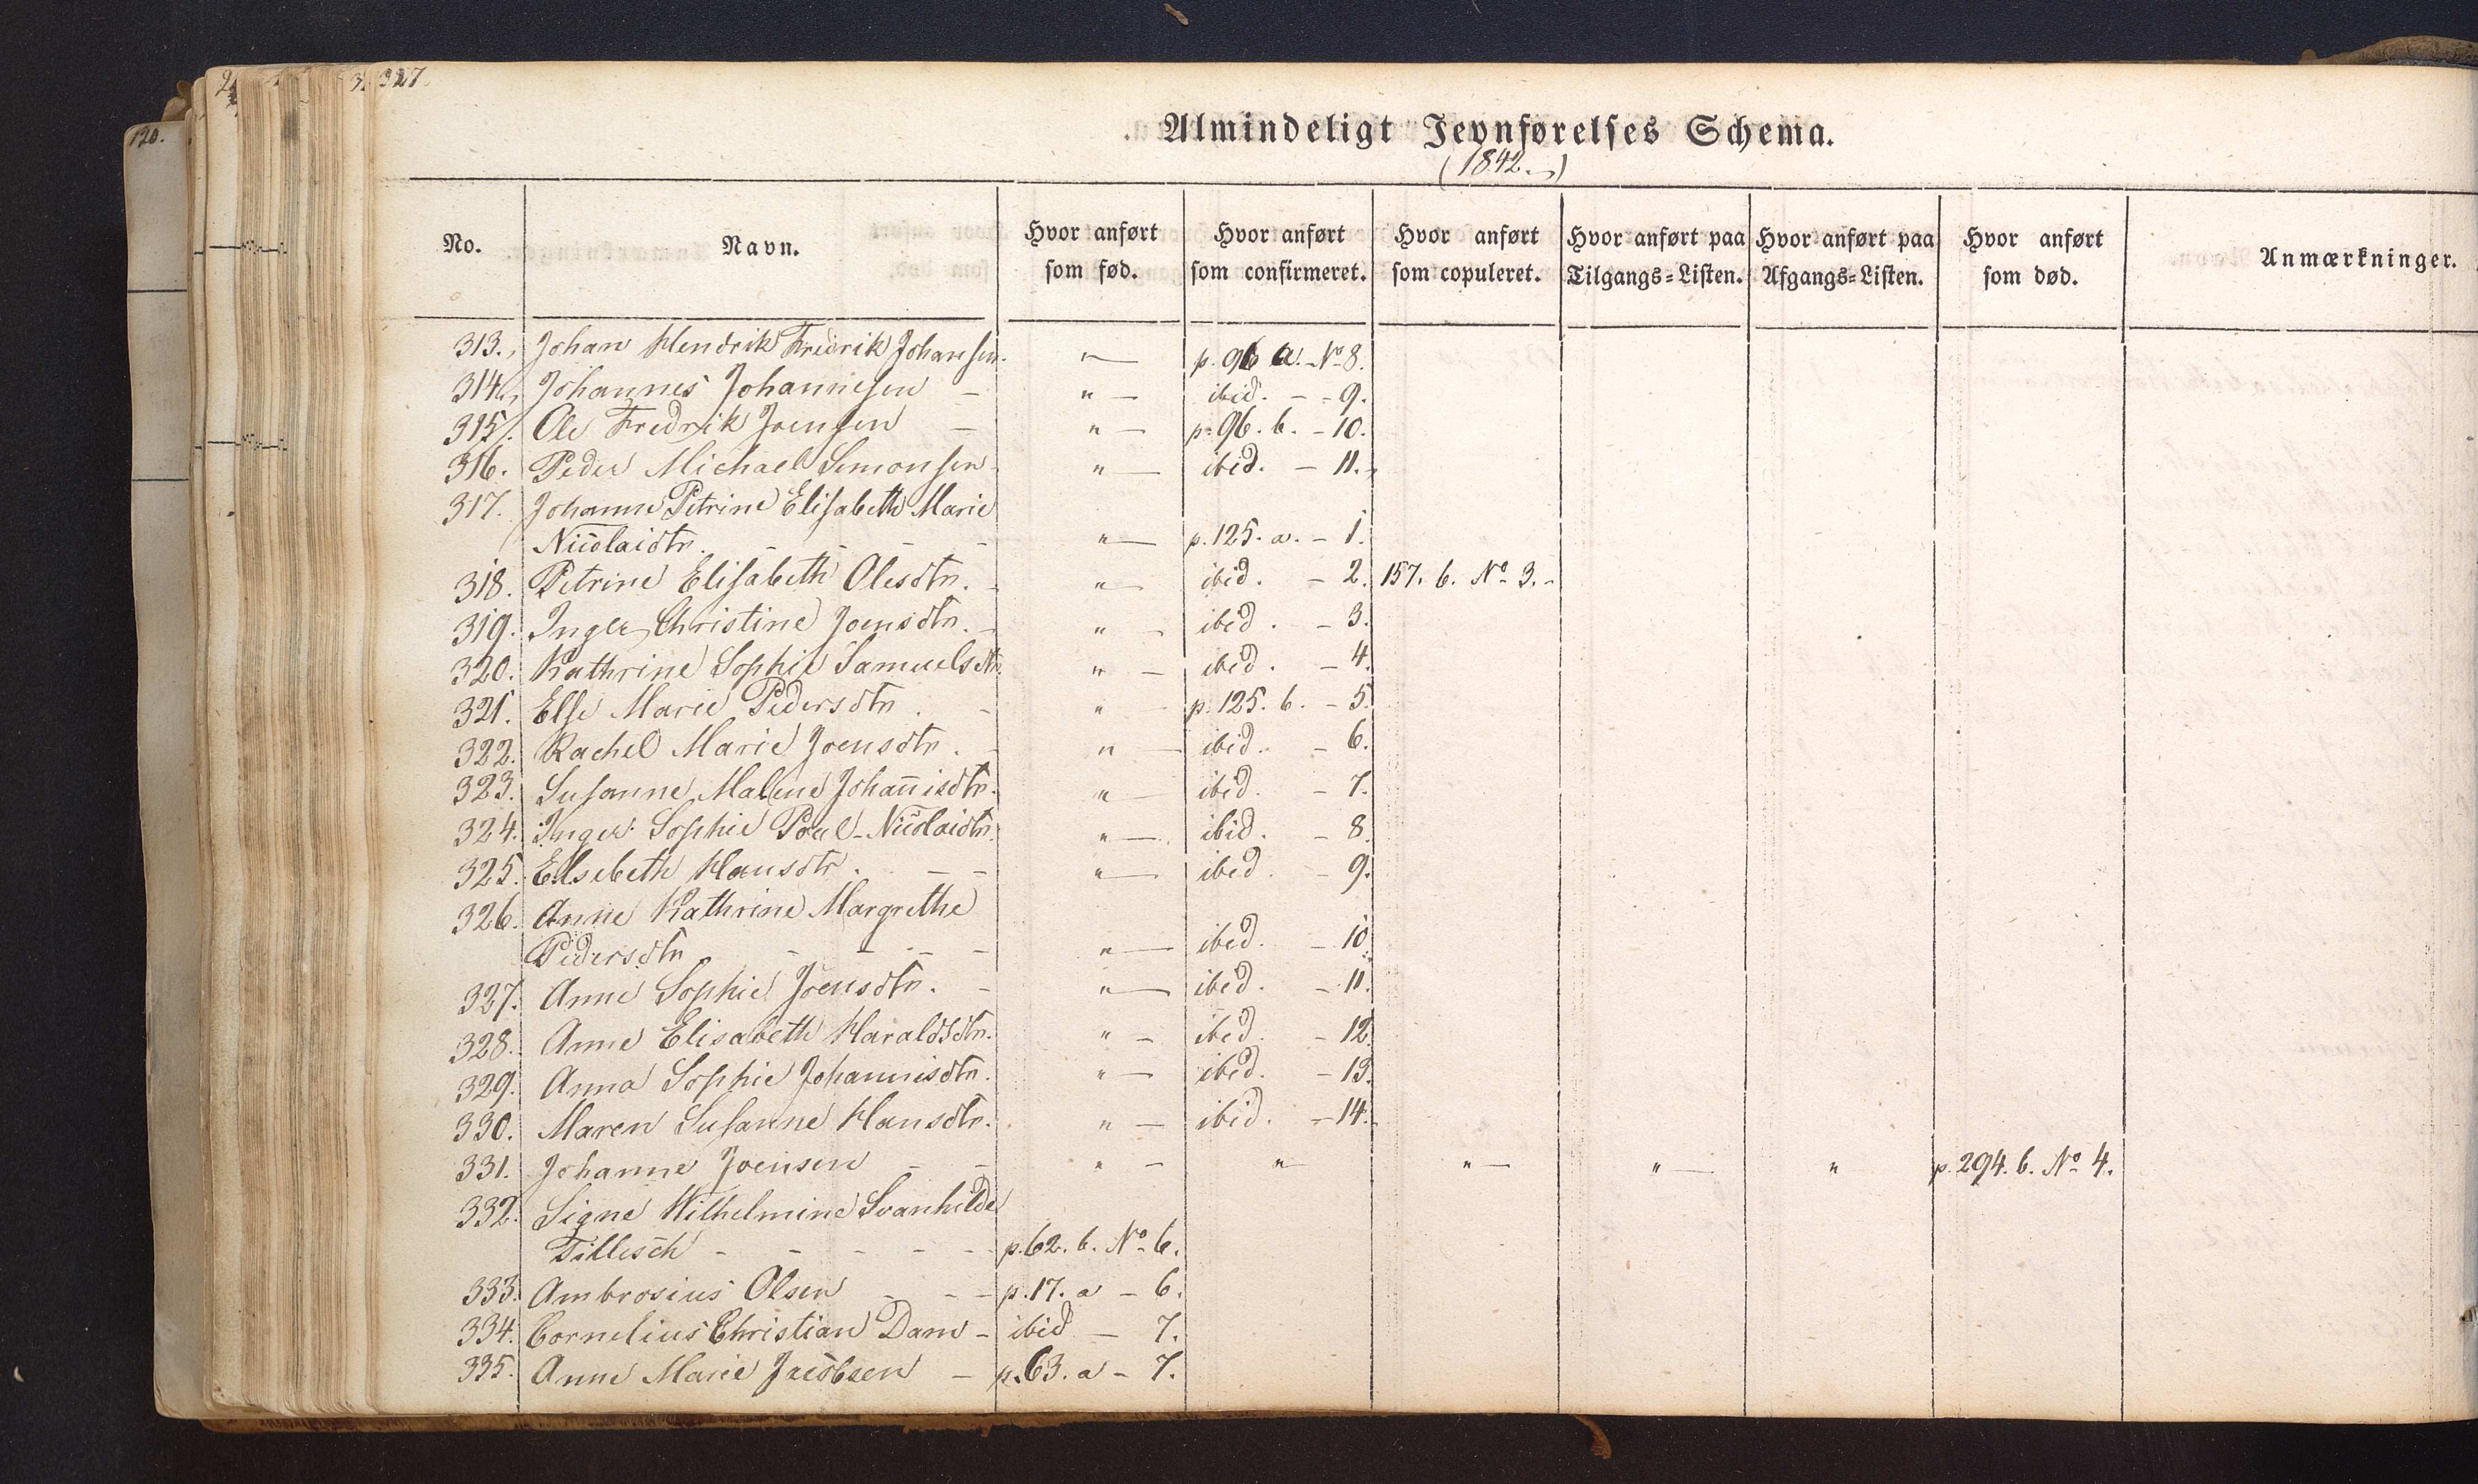 120.
327.
Almindeligt Jevnførelses Schema.
(1842.)
No. Navn. Hvor anført som fød. Hvor anført som confirmeret. Hvor anført som copuleret. Hvor anført paa Tilgangs=Listen. Hvor anført paa Afgangs=Listen. Hvor anført som død. Anmærkninger.
313. Johan Hendrik Fredrik Johansen. " — p. 96 a. - No 8.
314. Johannes Johannesen — " — ibid. - - 9.
315. Ole Fredrik Joensen — " — p. 96. b. - 10.
316. Peder Michael Simonsen " — ibid. — 11.
317. Johanne Petrine Elisabeth Marie
Nicolaidtr. - - - - " — p. 125. a. - 1.
318. Petrine Elisabeth Olesdtr. - " — ibid. - 2. 157. b. No 3. -
319. Inger Christine Joensdtr. - " - ibid. - 3.
320. Kathrine Sophie Samuelsdtr. " - ibid. - 4.
321. Else Marie Pedersdtr. - " - p. 125. b. - 5.
322. Rachel Marie Joensdtr. - " - ibid. - 6.
323. Susanne Malene Johañisdtr. " — ibid. - 7.
324. Inger Sophie Poul-Nicolaidtr. " — ibid. - 8.
325. Elsebeth Hansdtr. - - " — ibid. - 9.
326. Anne Kathrine Margrethe
Pedersdtr - - - - " — ibid. - 10.
327. Anne Sophie Joensdtr. - " — ibid. - 11.
328. Anne Elisabeth Haraldsdtr. " - ibid. - 12.
329. Anna Sophie Johannisdtr. " — ibid. - 13.
330. Maren Susanne Hansdtr. " — ibid. - 14.
331. Johanne Joensen - - " - " — " — " — " p. 294. b. No 4.
332. Signe Wilhelmine Svanhilde
Tillisch - - - - - p. 62. b. No 6.
333. Ambrosius Olsen - - - p. 17. a - 6.
334. Cornelius Christian Dam - ibid — 7.
335. Anne Marie Jacobsen - p. 63. a - 7.